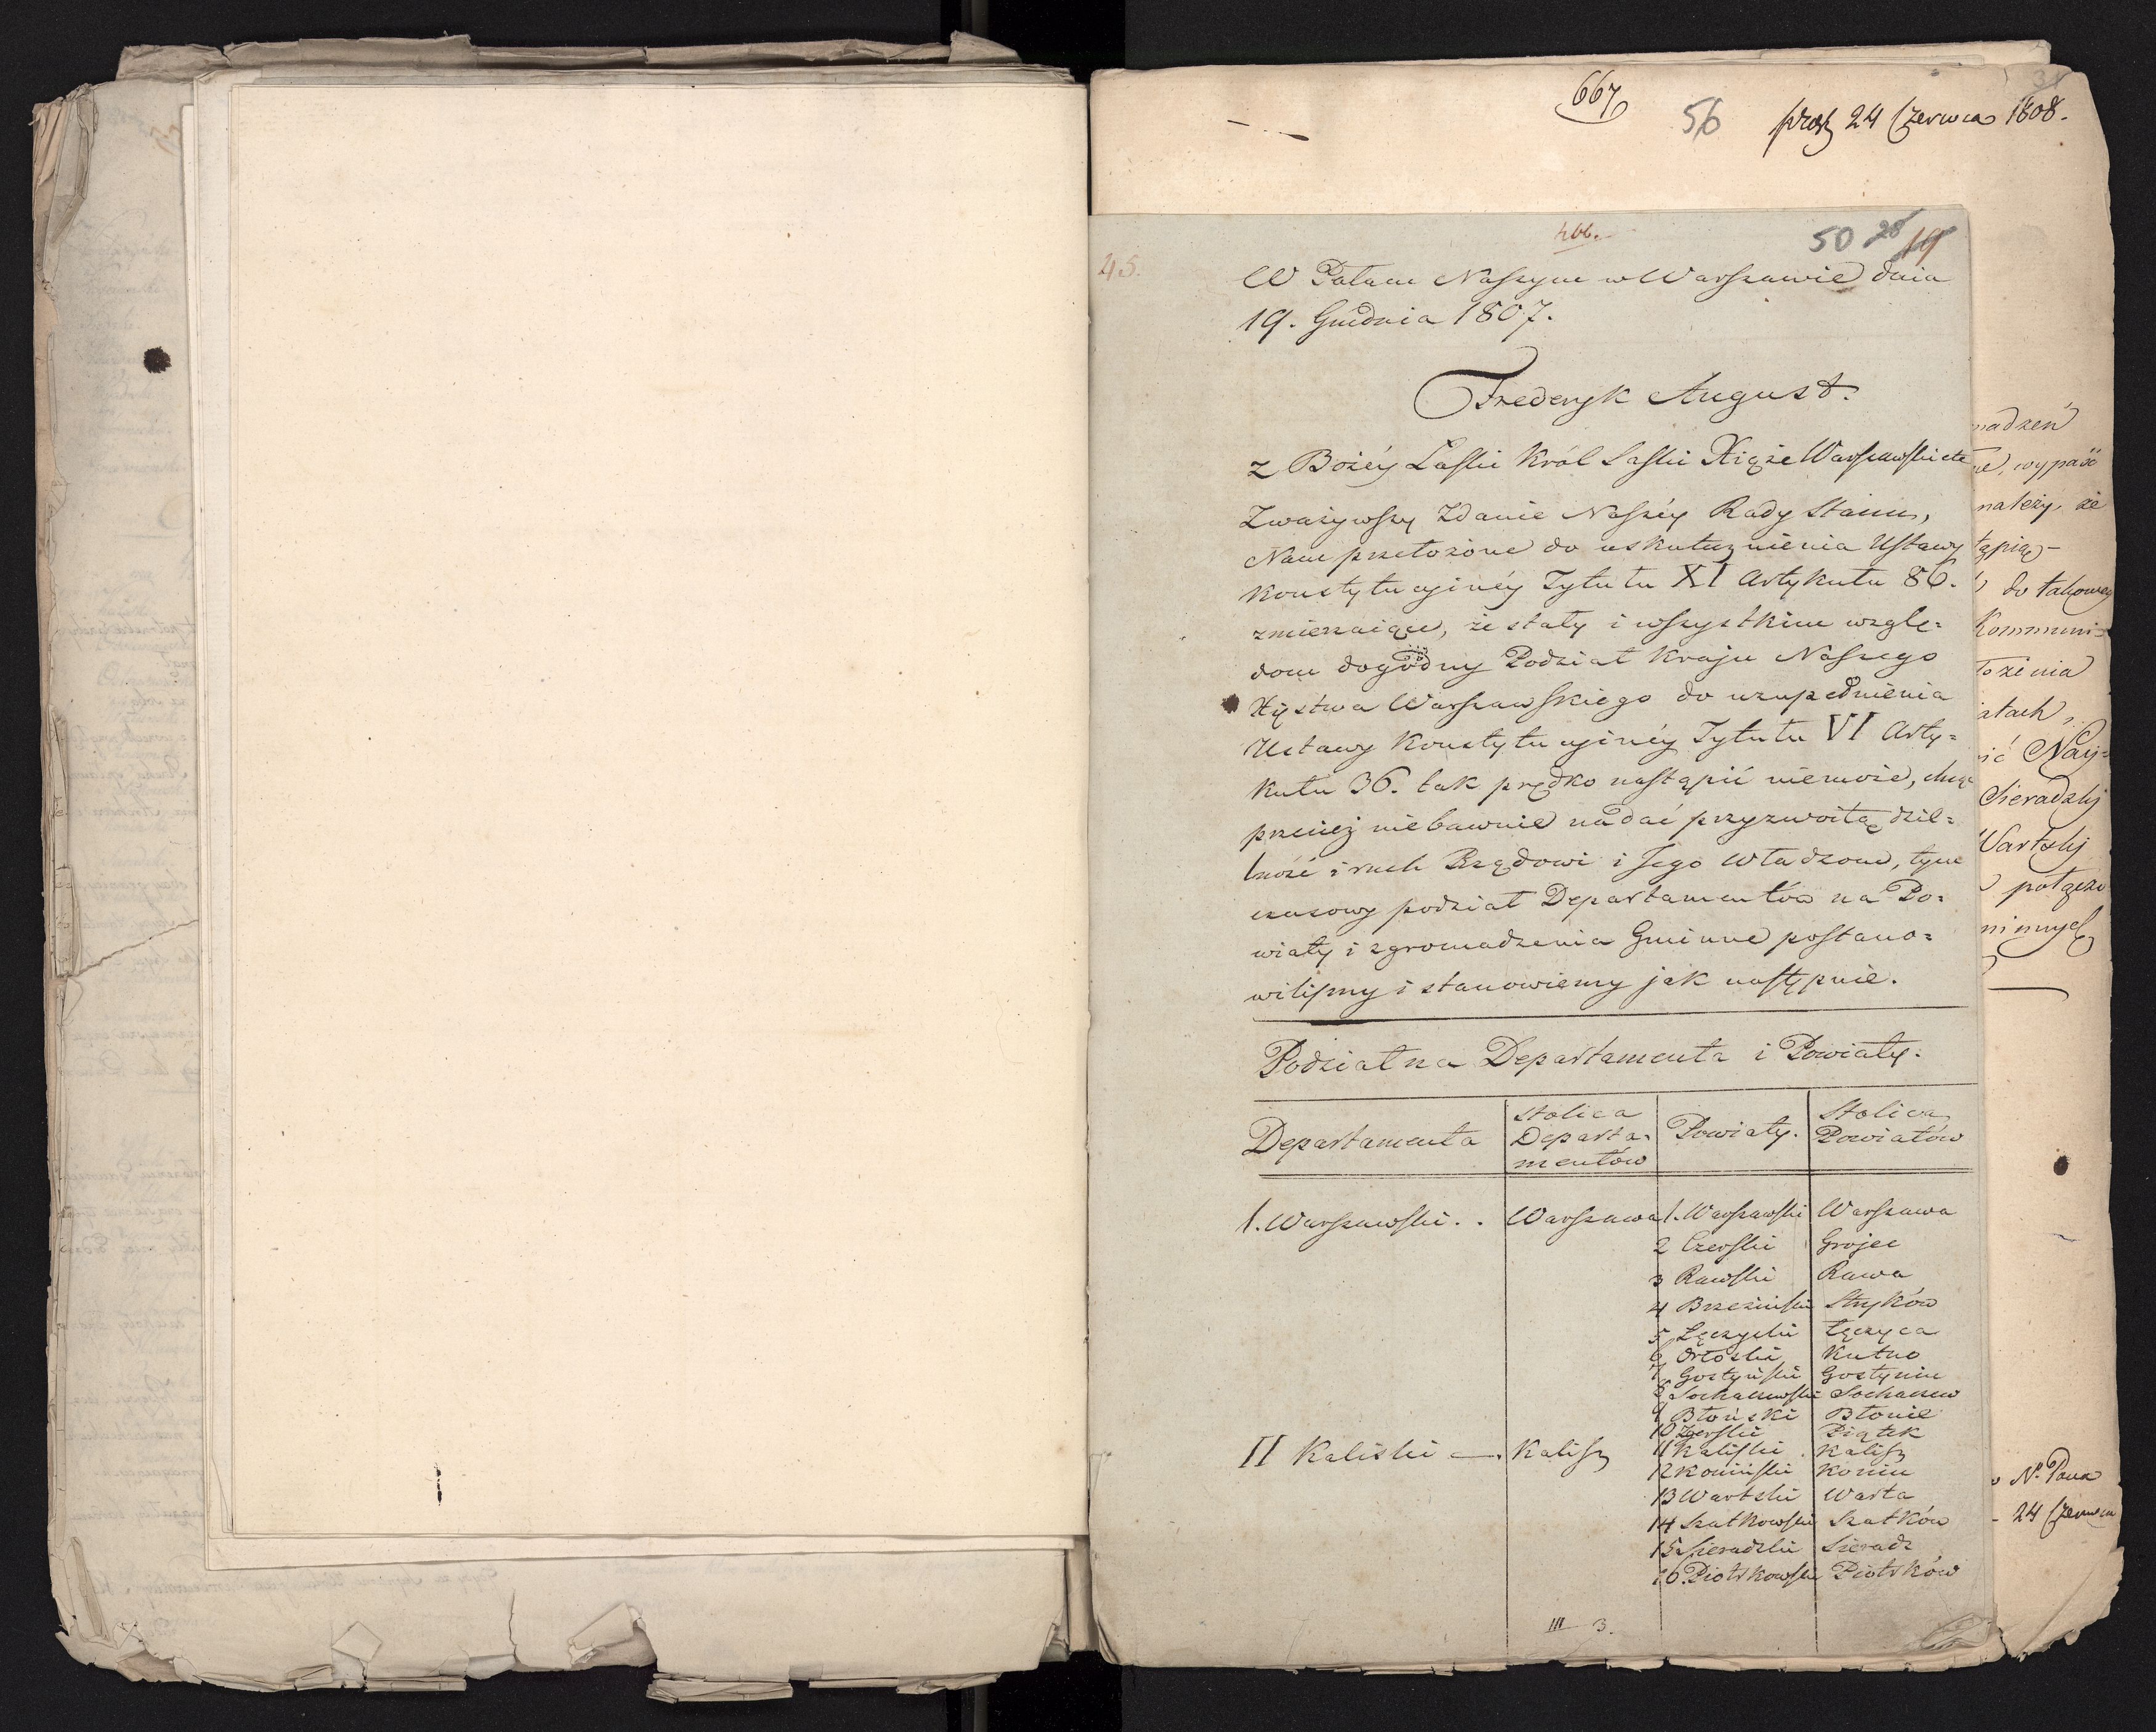 667
56
24 Czerwca 1808.
466.
50 28 19
45.
W Pałacu Naszym w Warszawie dnia
19. Grudnia 1807.
Frederyk August.
z Bożéy Łaski Król Saski Xiąże Warszawski etc
Zważywszy Zdanie Naszéy Rady Stanu,
Nam przełożone do uskutecznienia Ustawy
Konstytucyinéy Tytułu XI Artykułu 86.
zmierzaiące, że stały i wszystkim wzglę=
dom dogodny Podział Kraju Naszego
Xięstwa Warszawskiego do uzupełnienia
Ustawy Konstytucyinéy Tytułu VI Arty=
kułu 36. tak prędko nastąpić niemoże, chcąc
przeciez niebawnie nadać przyzwoitą dziel=
ność i ruch Rządowi i Jego Władzom, tym
czasowy podział Departamentów na Po=
wiaty i zgromadzenia Gminne postano=
wiliśmy i stanowiemy jak następuie.
Podział na Departamenta i Powiaty.
Departamenta
Stolica
Departa=
mentów
Powiaty.
Stolica
Powiatów
1. Warszawski . . Warszawa 1. Warszawski Warszawa
2 Czerski Grojec
3 Rawski Rawa
4 Brzeziński Stryków
5 Łęczycki Łęczyca
6 Orłoski Kutno
7 Gostyński Gostynin
8 Sochaczewski Sochaczew
9 Błoński Błonie
10 Zgierski Piątek
II Kaliski Kalisz 11 Kaliski Kalisz
12 Koniński Konin
13 Wartski Warta
14 Szatkowski Szatków
15 Sieradzki Sieradz
16. Piotrkowski Piotrków
III 3.
madzeń
wypaść
należy, że
tąpią-
do takowey
Kommuni=
łożenia
iatach,
ić Nay=
Sieradzkij
Wartskij
połącze
minnych
N. Pana
24 Czerwca